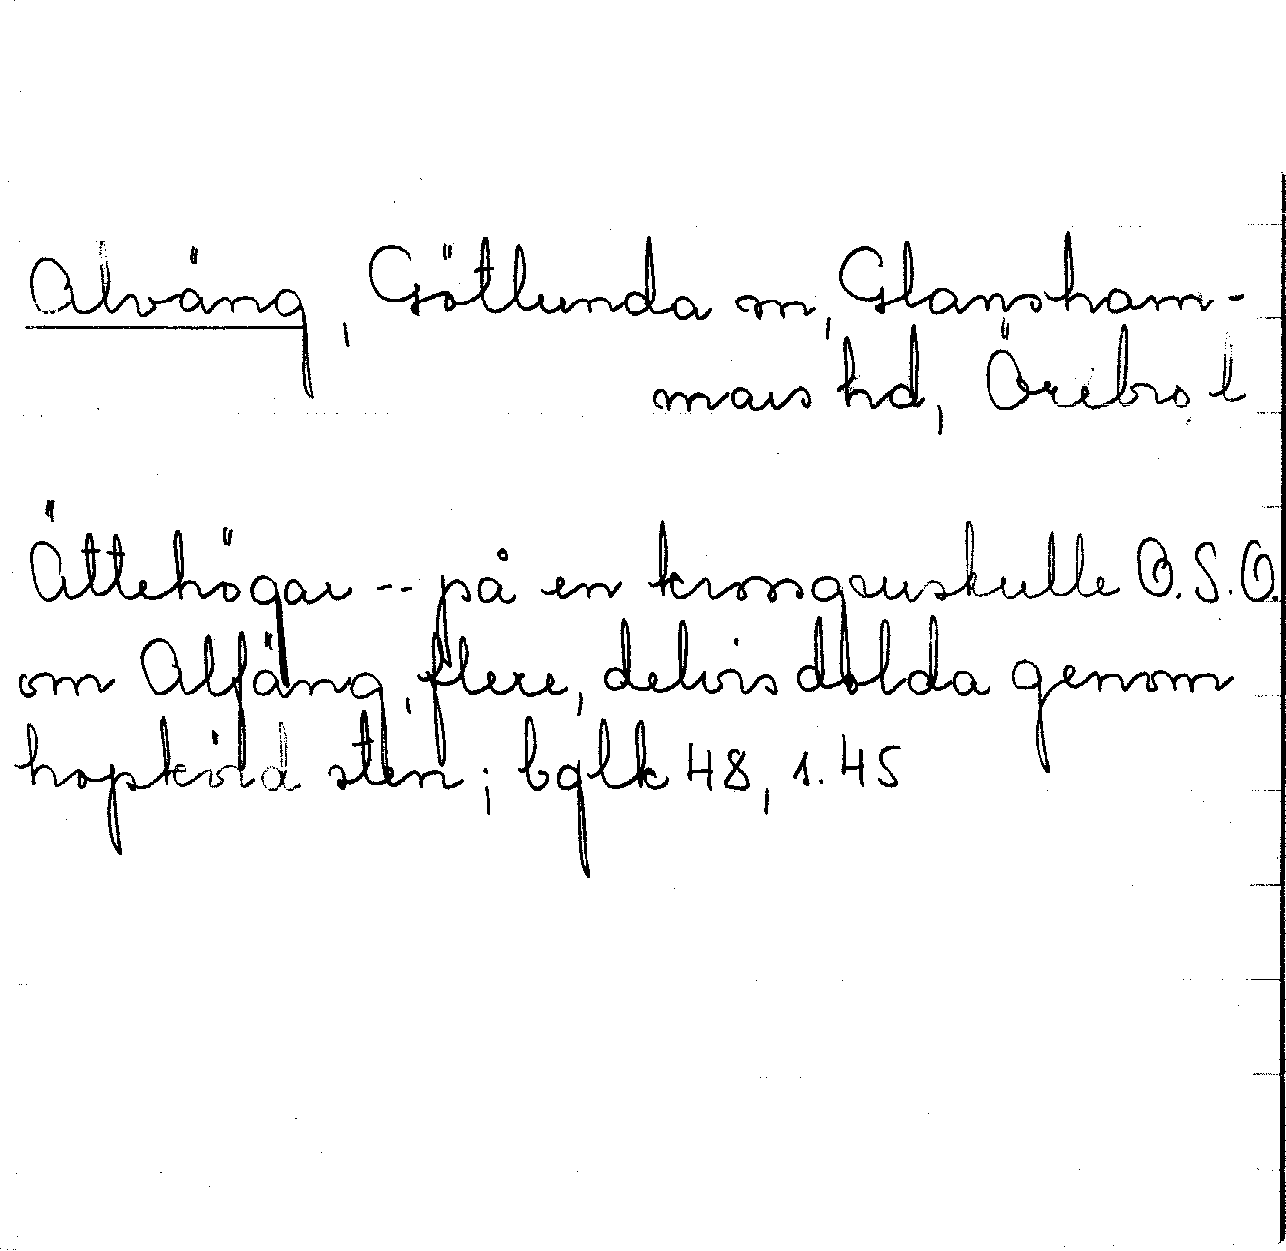 Alväng, Götlunda sn, Glansham-
mars hd, Örebro l
Ättehögar -- på en krossgruskulle O.S.O.
om Alfäng, flere, delvis dolda genom
hopkörd sten; bglk 48, 1.45